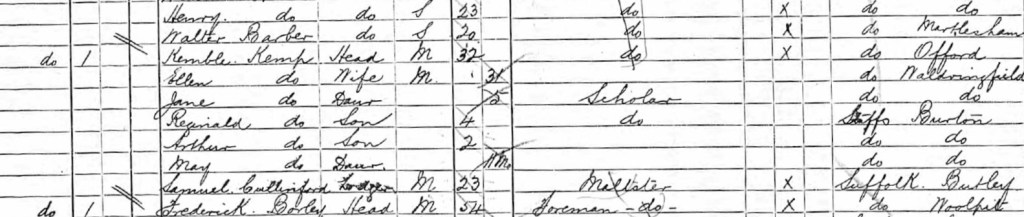 Henry do do S 23 do X do do
Walter Barber do S 20 do X do Martlesham
do 1 Kemble Kemp Head M 32 do X do Offord
Ellen do Wife M 31 do Waldringfield
Jane do Daur 5 Scholar do do
Reginald do Son 4 do Staffs Burton
Arthur do Son 2 do do
May do Daur 11 Mo do do
Samuel Cullingford Lodger M 23 Maltster X Suffolk Butley
do 1 Frederick Borley Head M 54 Foreman - do - X do Woolpit